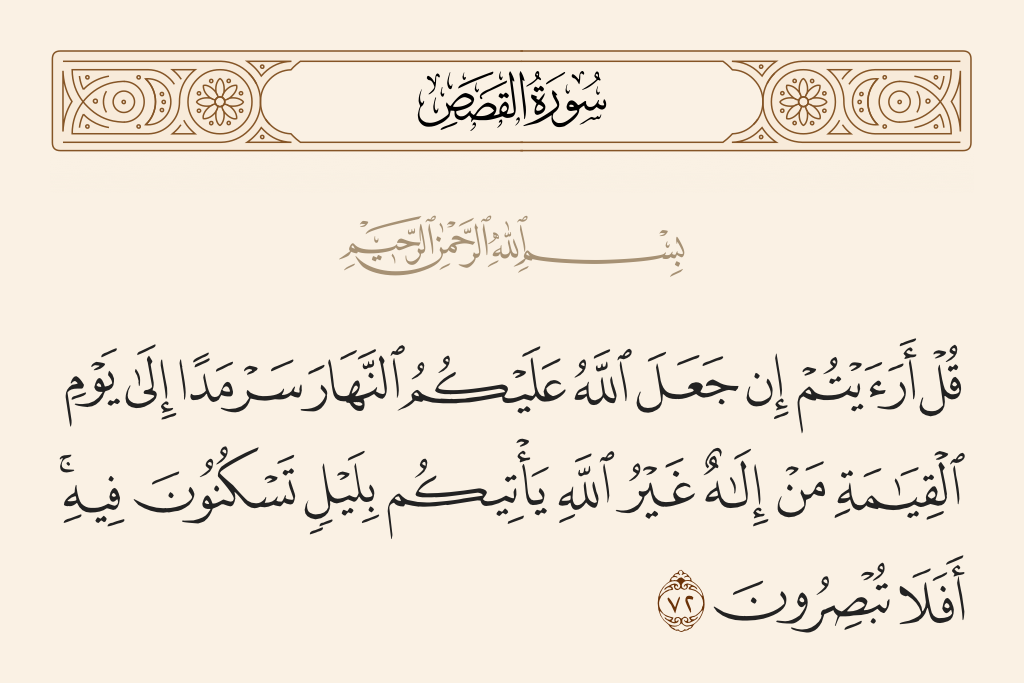 سُورَةُ القَصَصِ
بِسْمِ ٱللَّهِ ٱلرَّحْمَٰنِ ٱلرَّحِيمِ
قُلْ أَرَءَيْتُمْ إِن جَعَلَ ٱللَّهُ عَلَيْكُمُ ٱلنَّهَارَ سَرْمَدًا إِلَىٰ يَوْمِ
ٱلْقِيَـٰمَةِ مَنْ إِلَـٰهٌ غَيْرُ ٱللَّهِ يَأْتِيكُم بِلَيْلٍ تَسْكُنُونَ فِيهِ ۚ
أَفَلَا تُبْصِرُونَ ٧٢